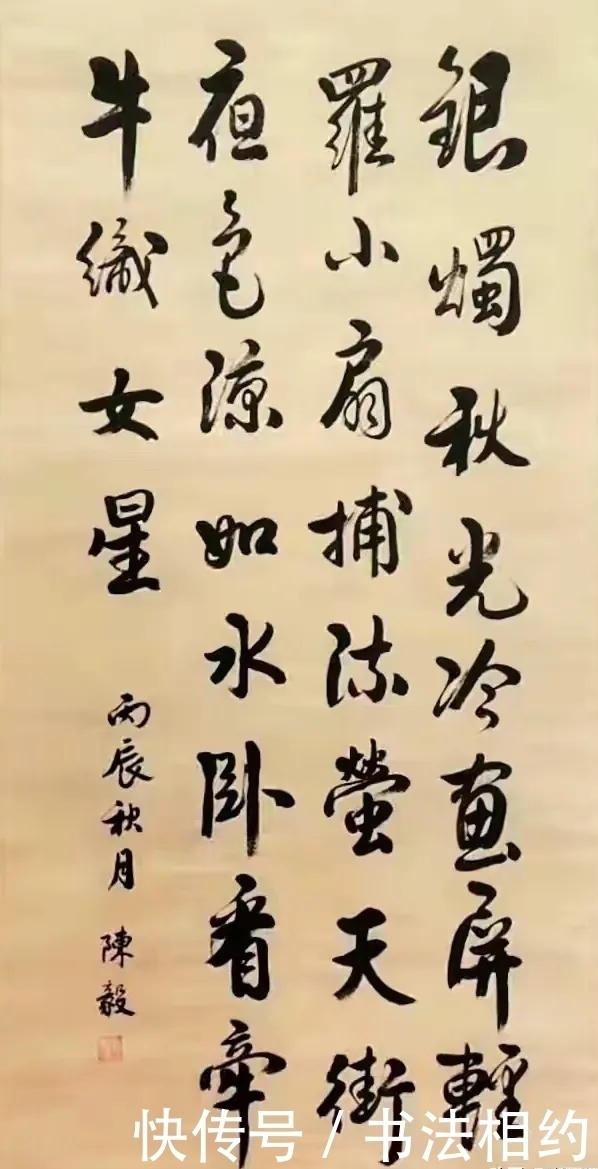 銀燭秋光冷画屏輕
羅小扇捕流螢天街
夜色涼如水卧看牽
牛織女星
丙辰秋月 陳毅
快传号 / 书法相约